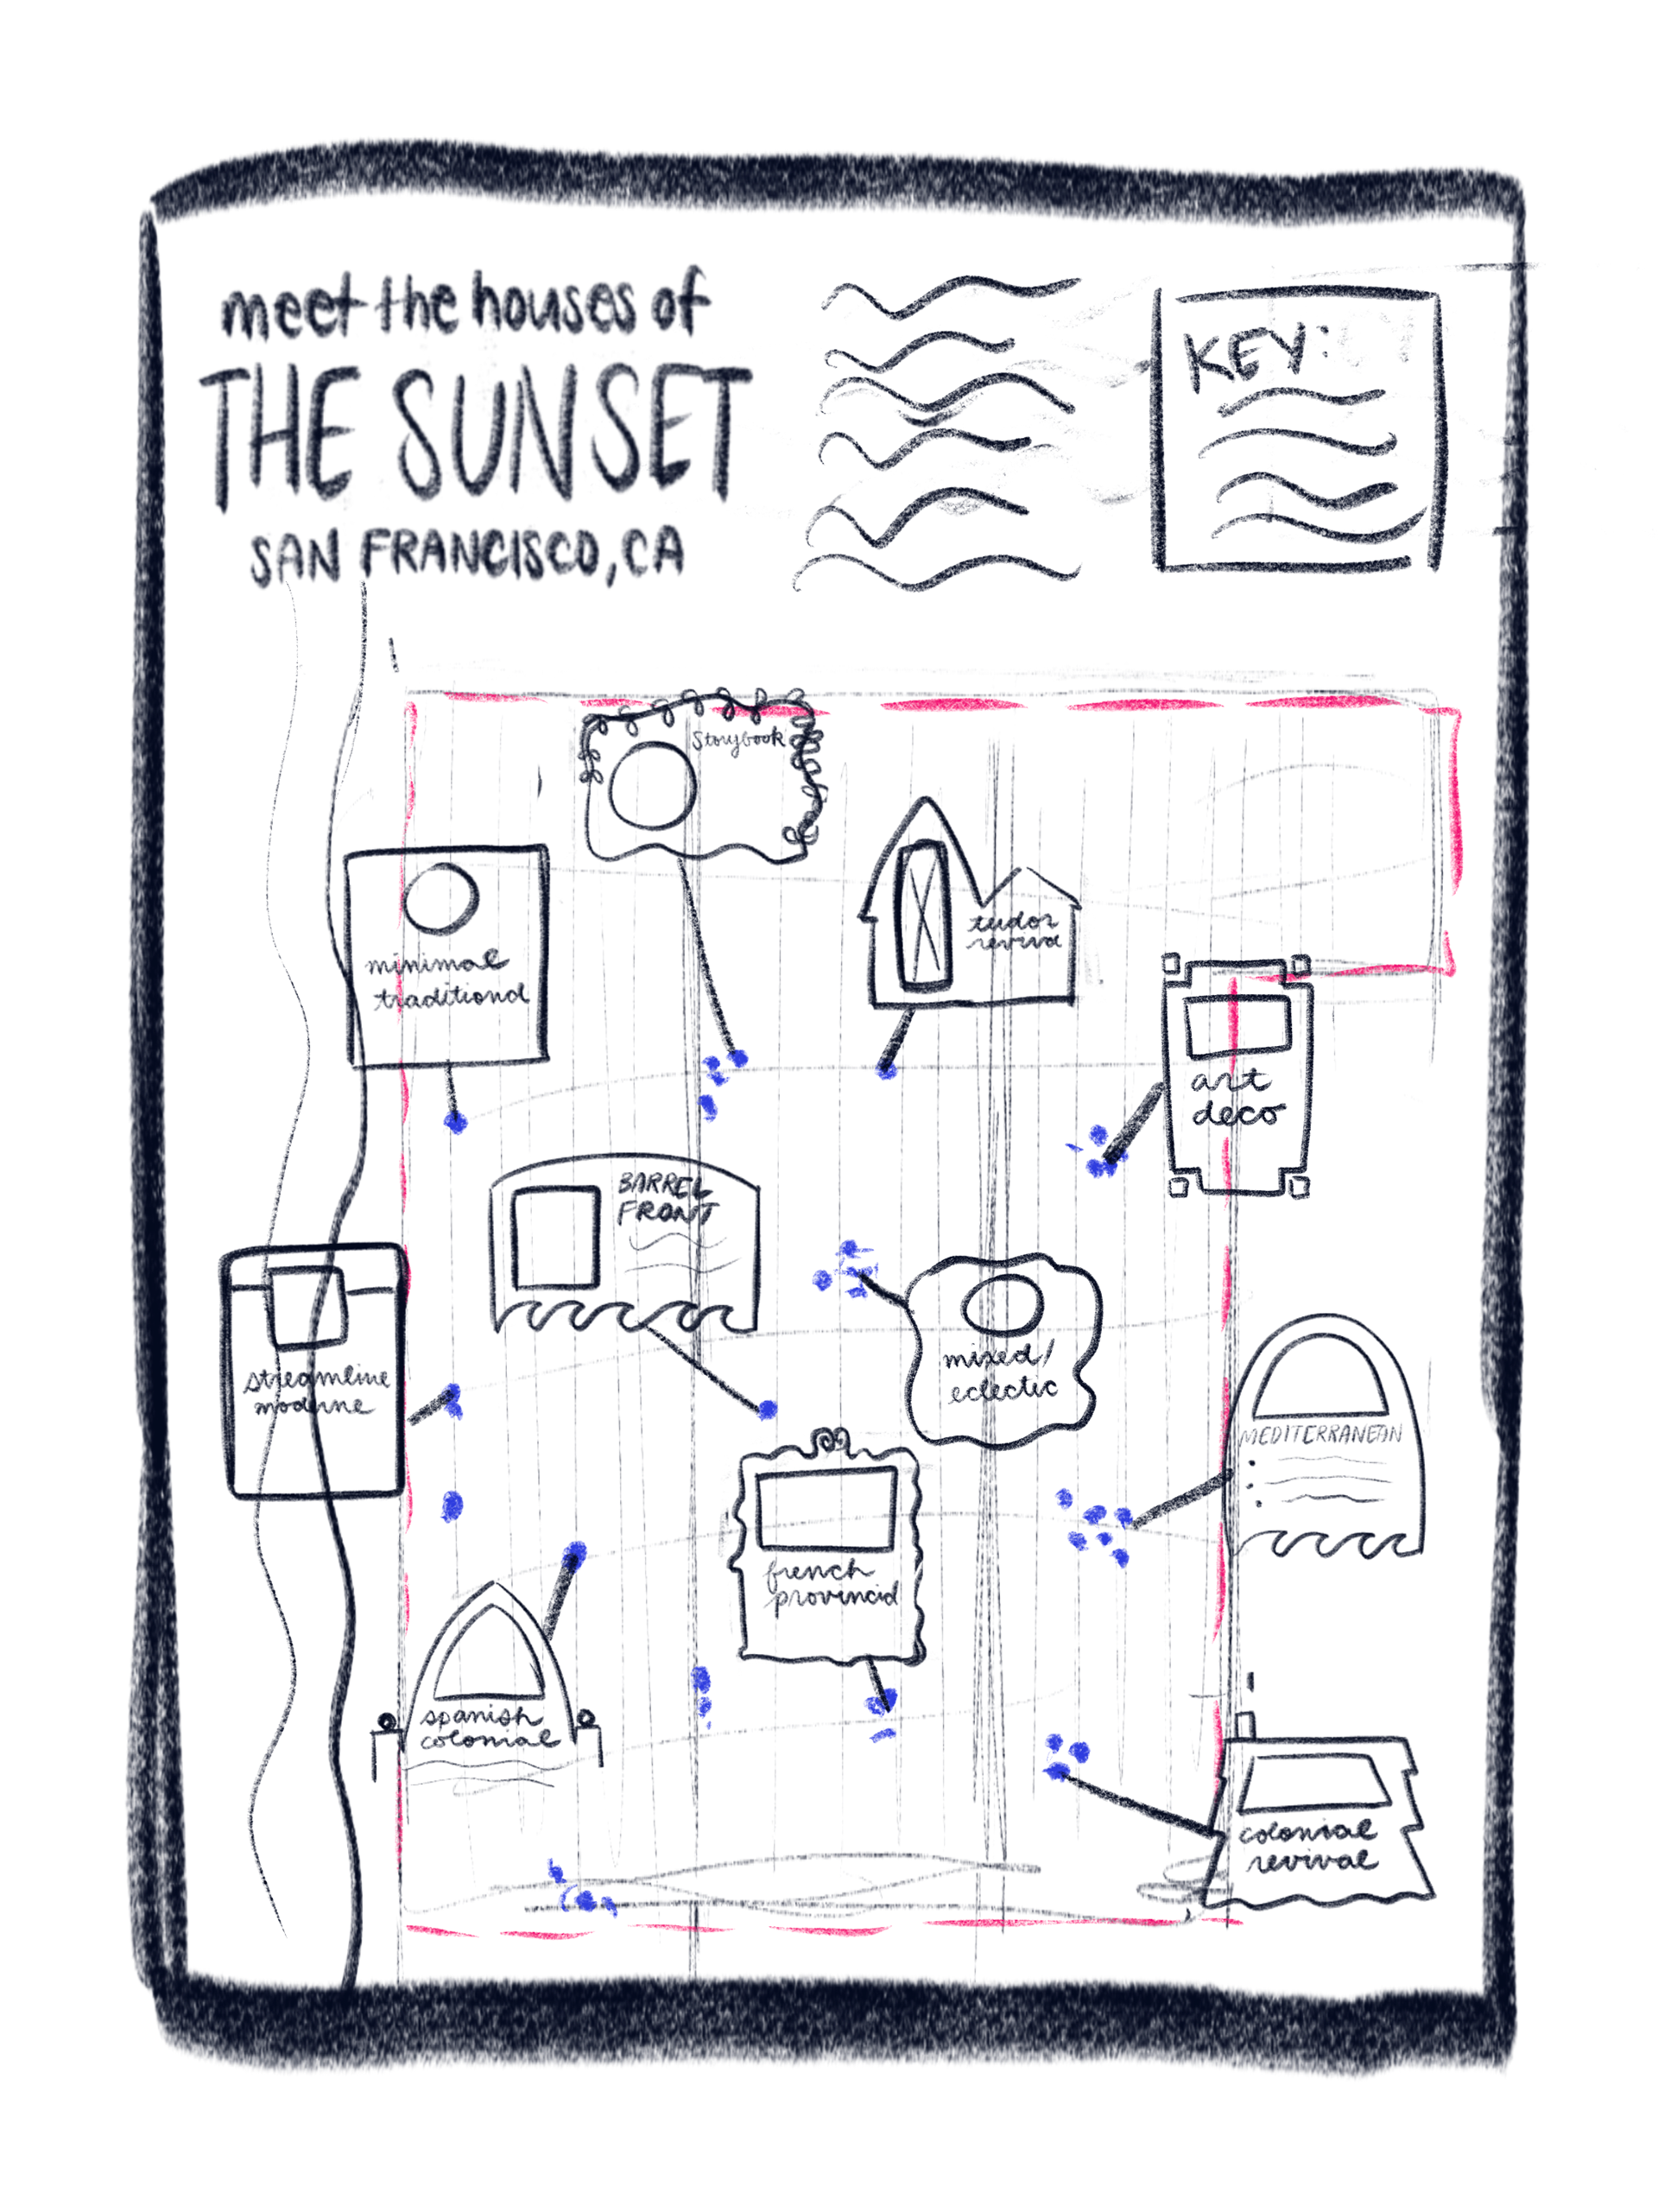 meet the houses of
THE SUNSET
SAN FRANCISCO, CA
KEY:
Storybook
minimal
traditional
tudor
reviva
art
deco
BARREL
FRONT
streamline
moderne
mixed/
eclectic
MEDITERRANEAN
french
provincial
spanish
colonial
colonial
revival